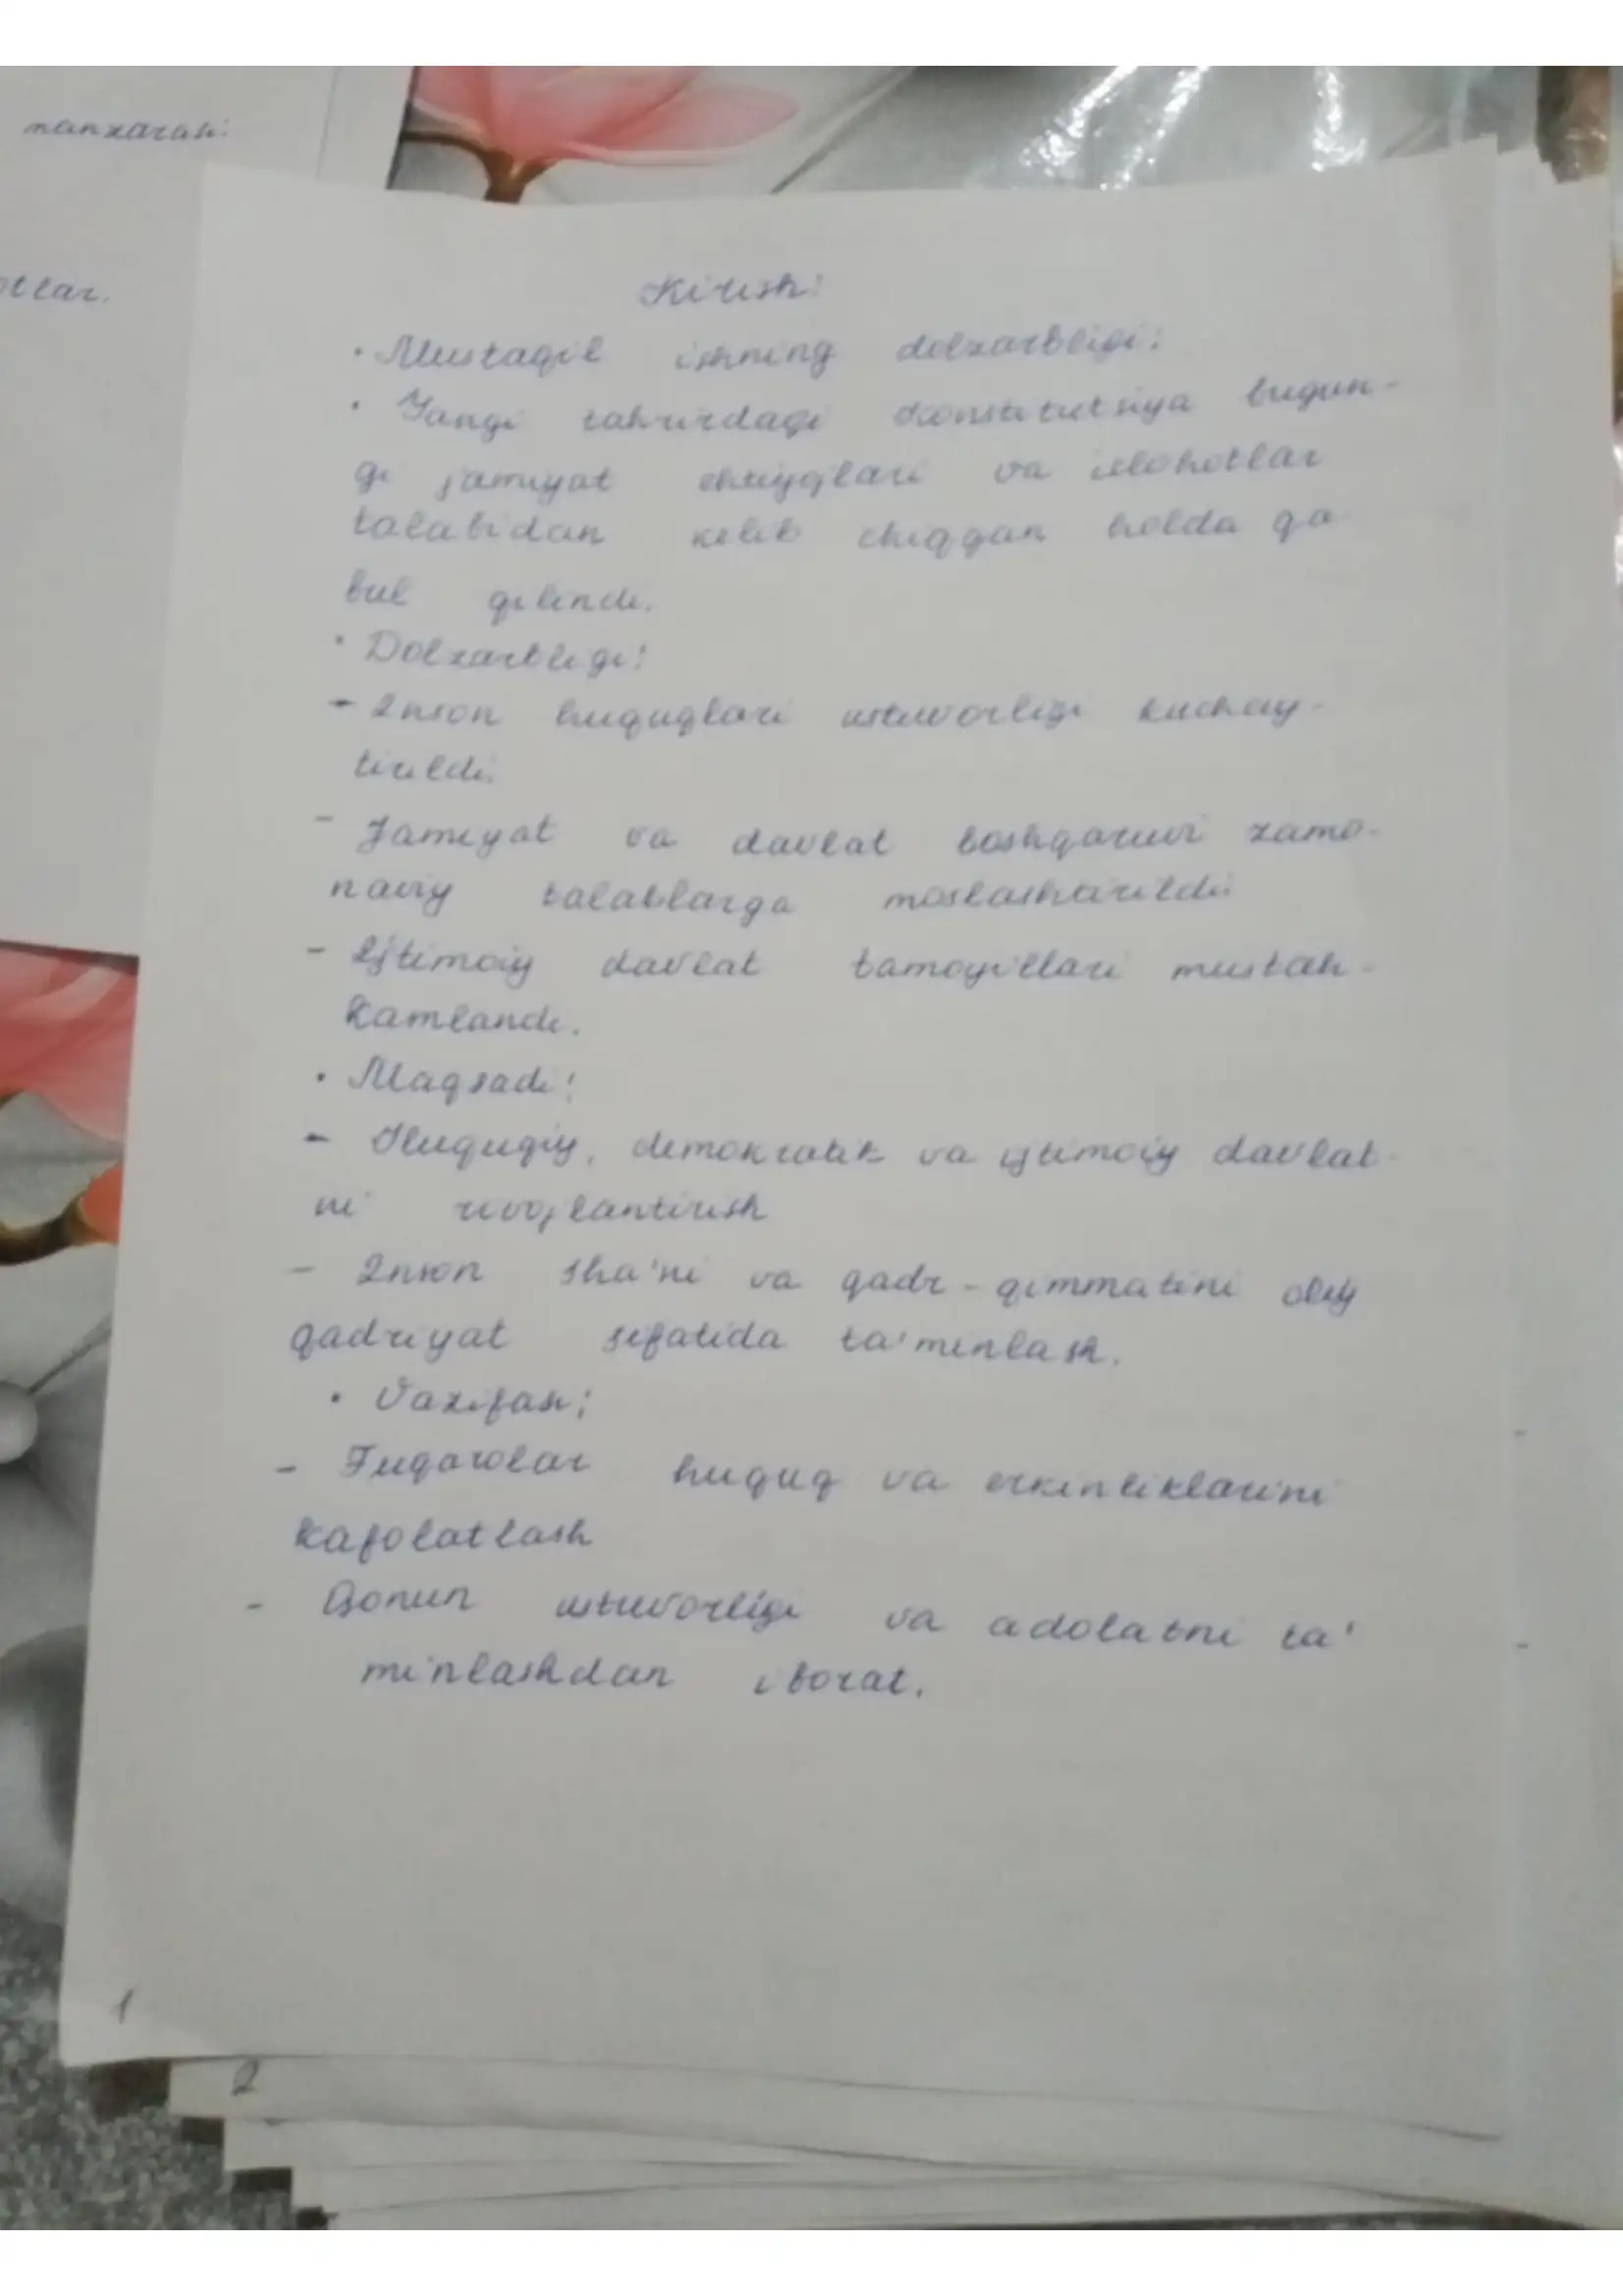 manzarasi:
otlar.
Kirish:
• Mustaqil ishning dolzarbligi:
• Yangi tahrirdagi konstitutsiya bugun-
gi jamiyat ehtiyojlari va islohotlar
talabidan kelib chiqqan holda qa
bul qilindi.
• Dolzarbligi:
- Inson huquqlari ustuvorligi kuchay-
tirildi.
- Jamiyat va davlat boshqaruvi zamo-
naviy talablarga moslashtirildi
- Ijtimoiy davlat tamoyillari mustah-
kamlandi.
• Maqsadi:
- Huquqiy, demokratik va ijtimoiy davlat-
ni rivojlantirish
- Inson sha'ni va qadr-qimmatini oliy
qadriyat sifatida ta'minlash.
• Vazifasi:
- Fuqarolar huquq va erkinliklarini
kafolatlash
- Qonun ustuvorligi va adolatni ta'
minlashdan iborat.
1
2